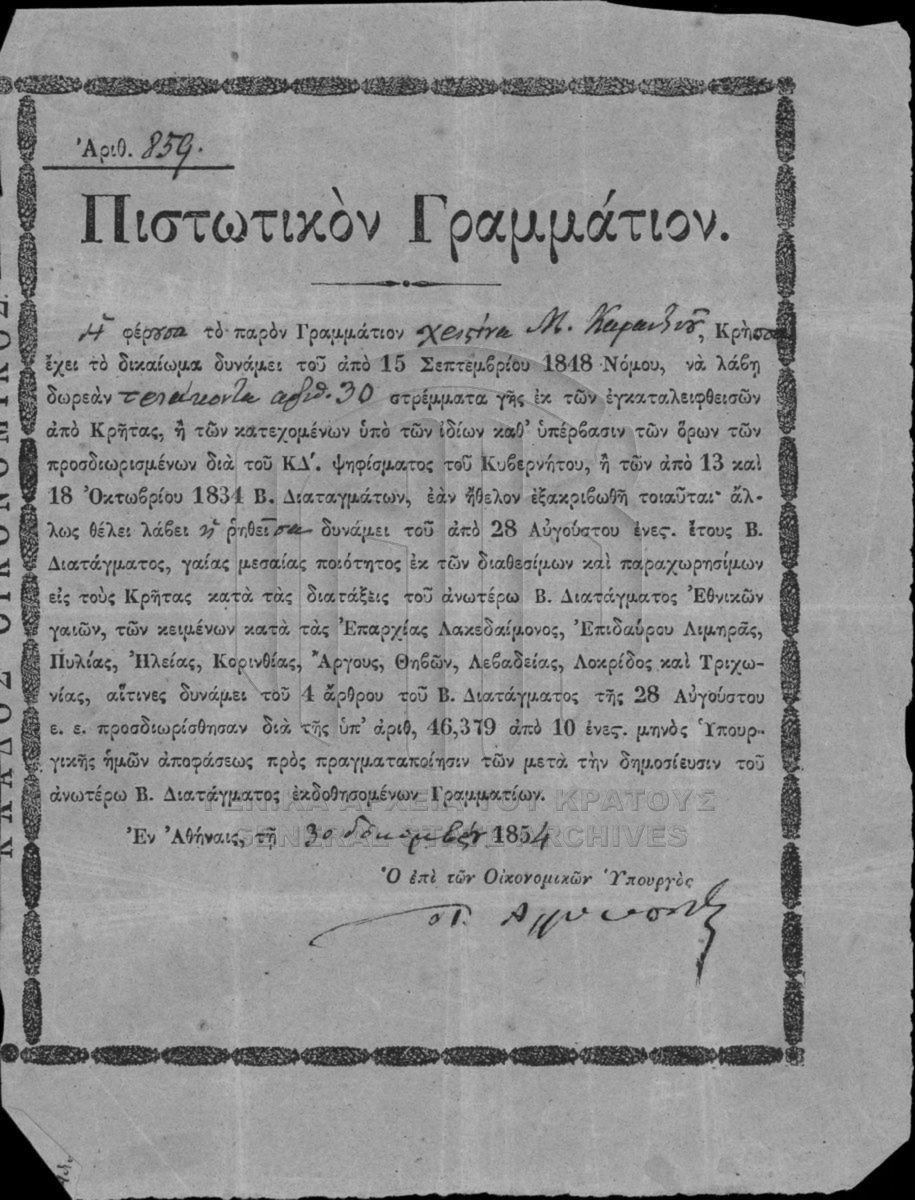 Ἀριθ. 859.
Πιστωτικὸν Γραμμάτιον.
Ἡ φέρουσα τὸ παρὸν Γραμμάτιον Μ. Κρῆσσα
ἔχει τὸ δικαίωμα δυνάμει τοῦ ἀπὸ 15 Σεπτεμβρίου 1848 Νόμου, νὰ λάβῃ
δωρεὰν τριάκοντα ἀριθ. 30 στρέμματα γῆς ἐκ τῶν ἐγκαταλειφθεισῶν
ἀπὸ Κρῆτας, ἢ τῶν κατεχομένων ὑπὸ τῶν ἰδίων καθ' ὑπέρβασιν τῶν ὅρων τῶν
προσδιωρισμένων διὰ τοῦ ΚΔ΄. ψηφίσματος τοῦ Κυβερνήτου, ἢ τῶν ἀπὸ 13 καὶ
18 Ὀκτωβρίου 1834 Β. Διαταγμάτων, ἐὰν ἤθελον ἐξακριβωθῆ τοιαῦται· ἄλ-
λως θέλει λάβει ἡ ῥηθεῖσα δυνάμει τοῦ ἀπὸ 28 Αὐγούστου ἐνες. ἔτους Β.
Διατάγματος, γαίας μεσαίας ποιότητος ἐκ τῶν διαθεσίμων καὶ παραχωρησίμων
εἰς τοὺς Κρῆτας κατὰ τὰς διατάξεις τοῦ ἀνωτέρω Β. Διατάγματος Ἐθνικῶν
γαιῶν, τῶν κειμένων κατὰ τὰς Ἐπαρχίας Λακεδαίμονος, Ἐπιδαύρου Λιμηρᾶς,
Πυλίας, Ἠλείας, Κορινθίας, Ἄργους, Θηβῶν, Λεβαδείας, Λοκρίδος καὶ Τριχω-
νίας, αἵτινες δυνάμει τοῦ 4 ἄρθρου τοῦ Β. Διατάγματος τῆς 28 Αὐγούστου
ἐ. ἐ. προσδιωρίσθησαν διὰ τῆς ὑπ' ἀριθ, 46,379 ἀπὸ 10 ἐνες. μηνὸς Ὑπουρ-
γικῆς ἡμῶν ἀποφάσεως πρὸς πραγματοποίησιν τῶν μετὰ τὴν δημοσίευσιν τοῦ
ἀνωτέρω Β. Διατάγματος ἐκδοθησομένων Γραμματίων.
Ἐν Ἀθήναις, τῇ 30 1854
Ὁ ἐπὶ τῶν Οἰκονομικῶν Ὑπουργὸς
ΚΛΑΔΟΣ ΟΙΚΟΝΟΜΙΚΟΣ
ΓΕΝΙΚΑ ΑΡΧΕΙΑ ΤΟΥ ΚΡΑΤΟΥΣ
GENERAL STATE ARCHIVES